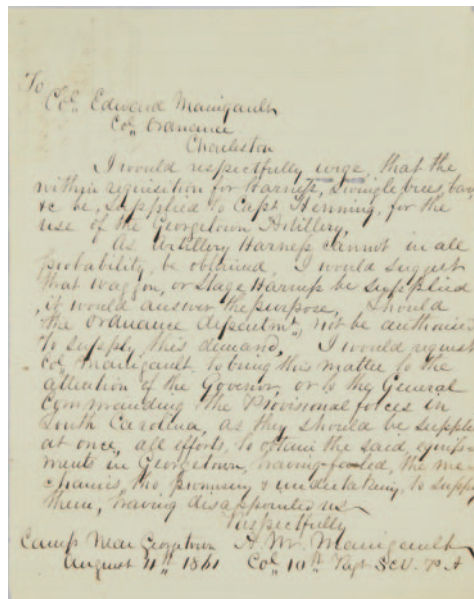 To
Col. Edward Manigault
Col. Ordnance
Charleston
I would respectfully urge, that the
within requisition for Harness, Swingletrees, 
&c be, supplied to Capt Henning, for the
use of the Georgetown Artillery,
As Artillery Harness cannot in all
probability, be obtained, I would suggest
that waggon, or Stage Harness be supplied
, it would answer the purpose, Should
the Ordnance department, not be authorised
to supply, this demand, I would request
Col. Manigault, to bring this matter to the
attention of the Govenor, or to the General
Commanding the Provisional forces in
South Carolina, as they should be supplied
at once, all efforts, to obtain the said, equip-
ments in Georgetown, having failed, the me-
chanics, tho promising & undertaking, to supply
them, having disappointed us
Respectfully
Camp Near Georgetown A. M. Manigault
August 1861 Col 10th Regt SCV. P A